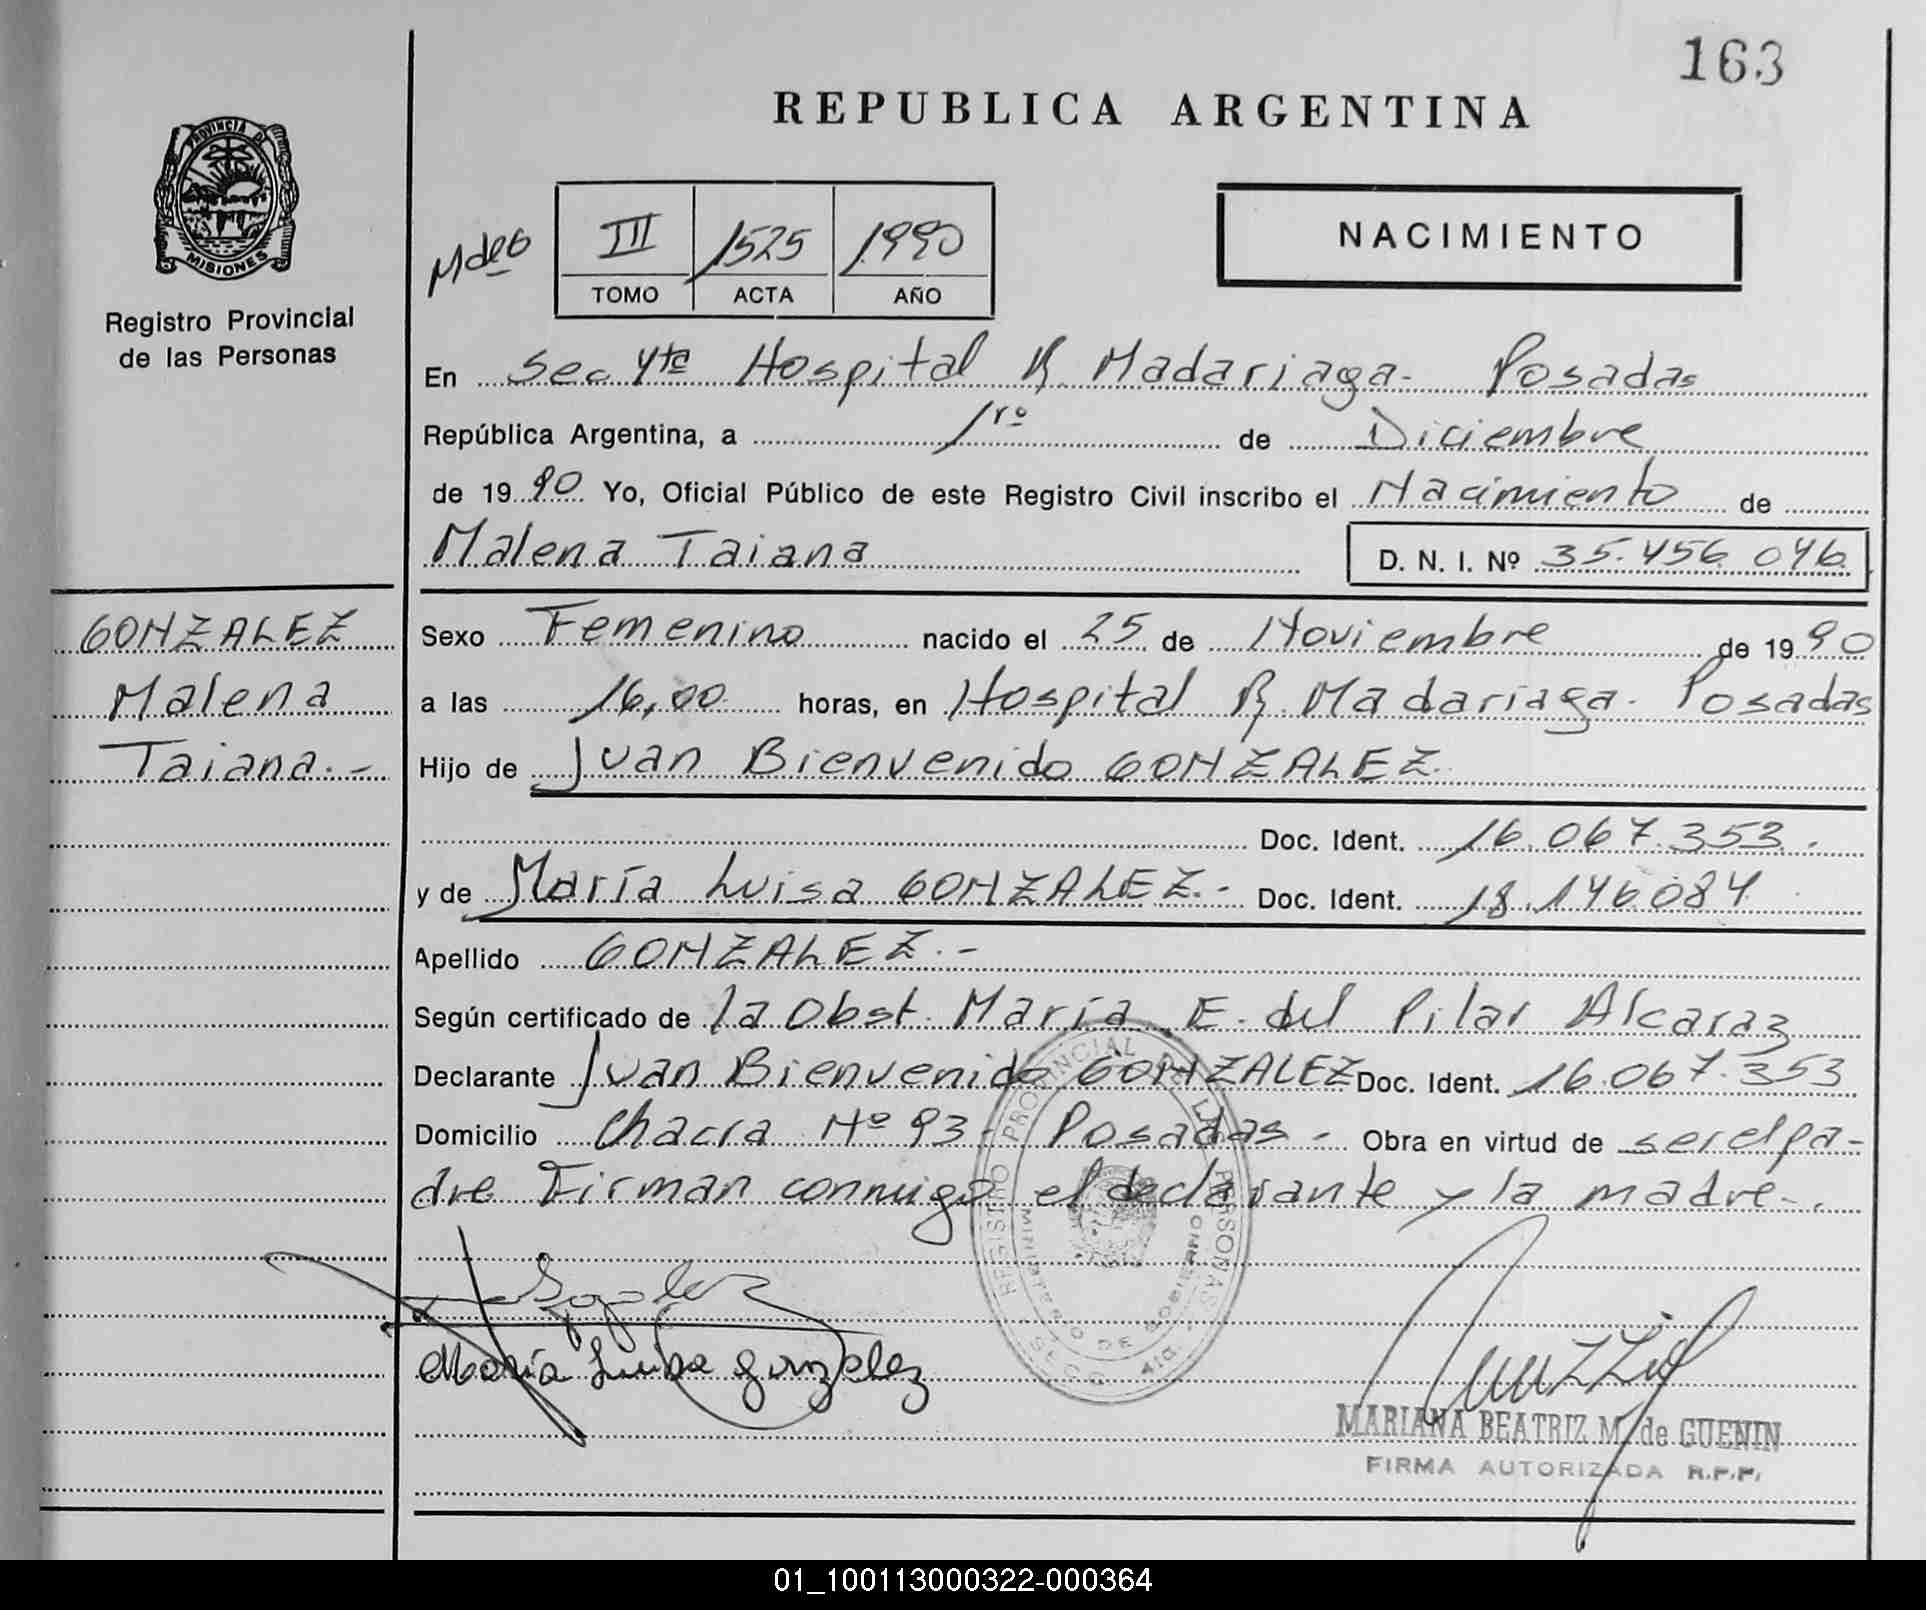 163
REPUBLICA ARGENTINA
PROVINCIA DE
MISIONES
Registro Provincial
de las Personas
III 1525 1990
TOMO ACTA AÑO
NACIMIENTO
En Sec 4ta Hospital R. Madariaga- Posadas
República Argentina, a 1ro de Diciembre
de 1990 Yo, Oficial Público de este Registro Civil inscribo el Nacimiento de
Malena Taiana D. N. I. Nº 35.456.046
GONZALEZ
Malena
Taiana.-
Sexo Femenino nacido el 25 de Noviembre de 1990
a las 16,00 horas, en Hospital R. Madariaga- Posadas
Hijo de Juan Bienvenido GONZALEZ.
Doc. Ident. 16.067.353.
y de María Luisa GONZALEZ.- Doc. Ident. 18.146.084
Apellido GONZALEZ.-
Según certificado de la Obst. María E. del Pilar Alcaraz
Declarante Juan Bienvenido GONZALEZ Doc. Ident. 16.067.353
Domicilio Chacra Nº 93- Posadas- Obra en virtud de ser el pa-
dre Firman conmigo el declarante y la madre-.
REGISTRO PROVINCIAL DE LAS PERSONAS
MINISTERIO DE GOBIERNO
SECC. 4ta.
María Luisa gonzalez
MARIANA BEATRIZ M. de GUENIN
FIRMA AUTORIZADA R.P.P.
01_100113000322-000364